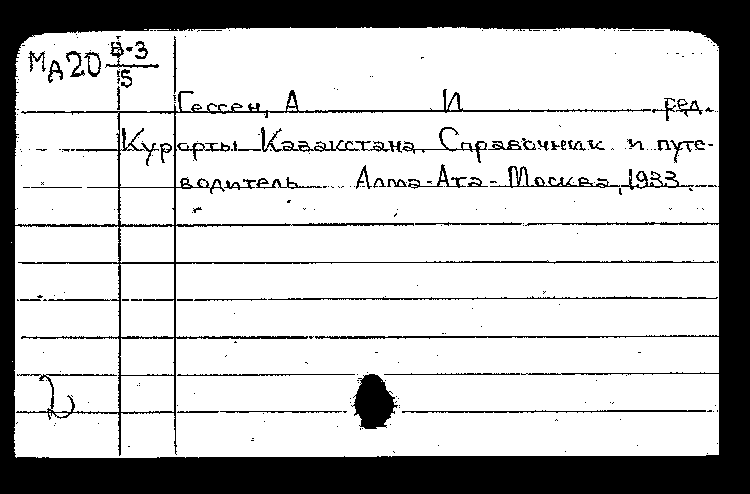 МА20 В-3
5
Гессен, А И ред.
Курорты Казакстана. Справочник и путе-
водитель Алма-Ата-Москва, 1933.
2